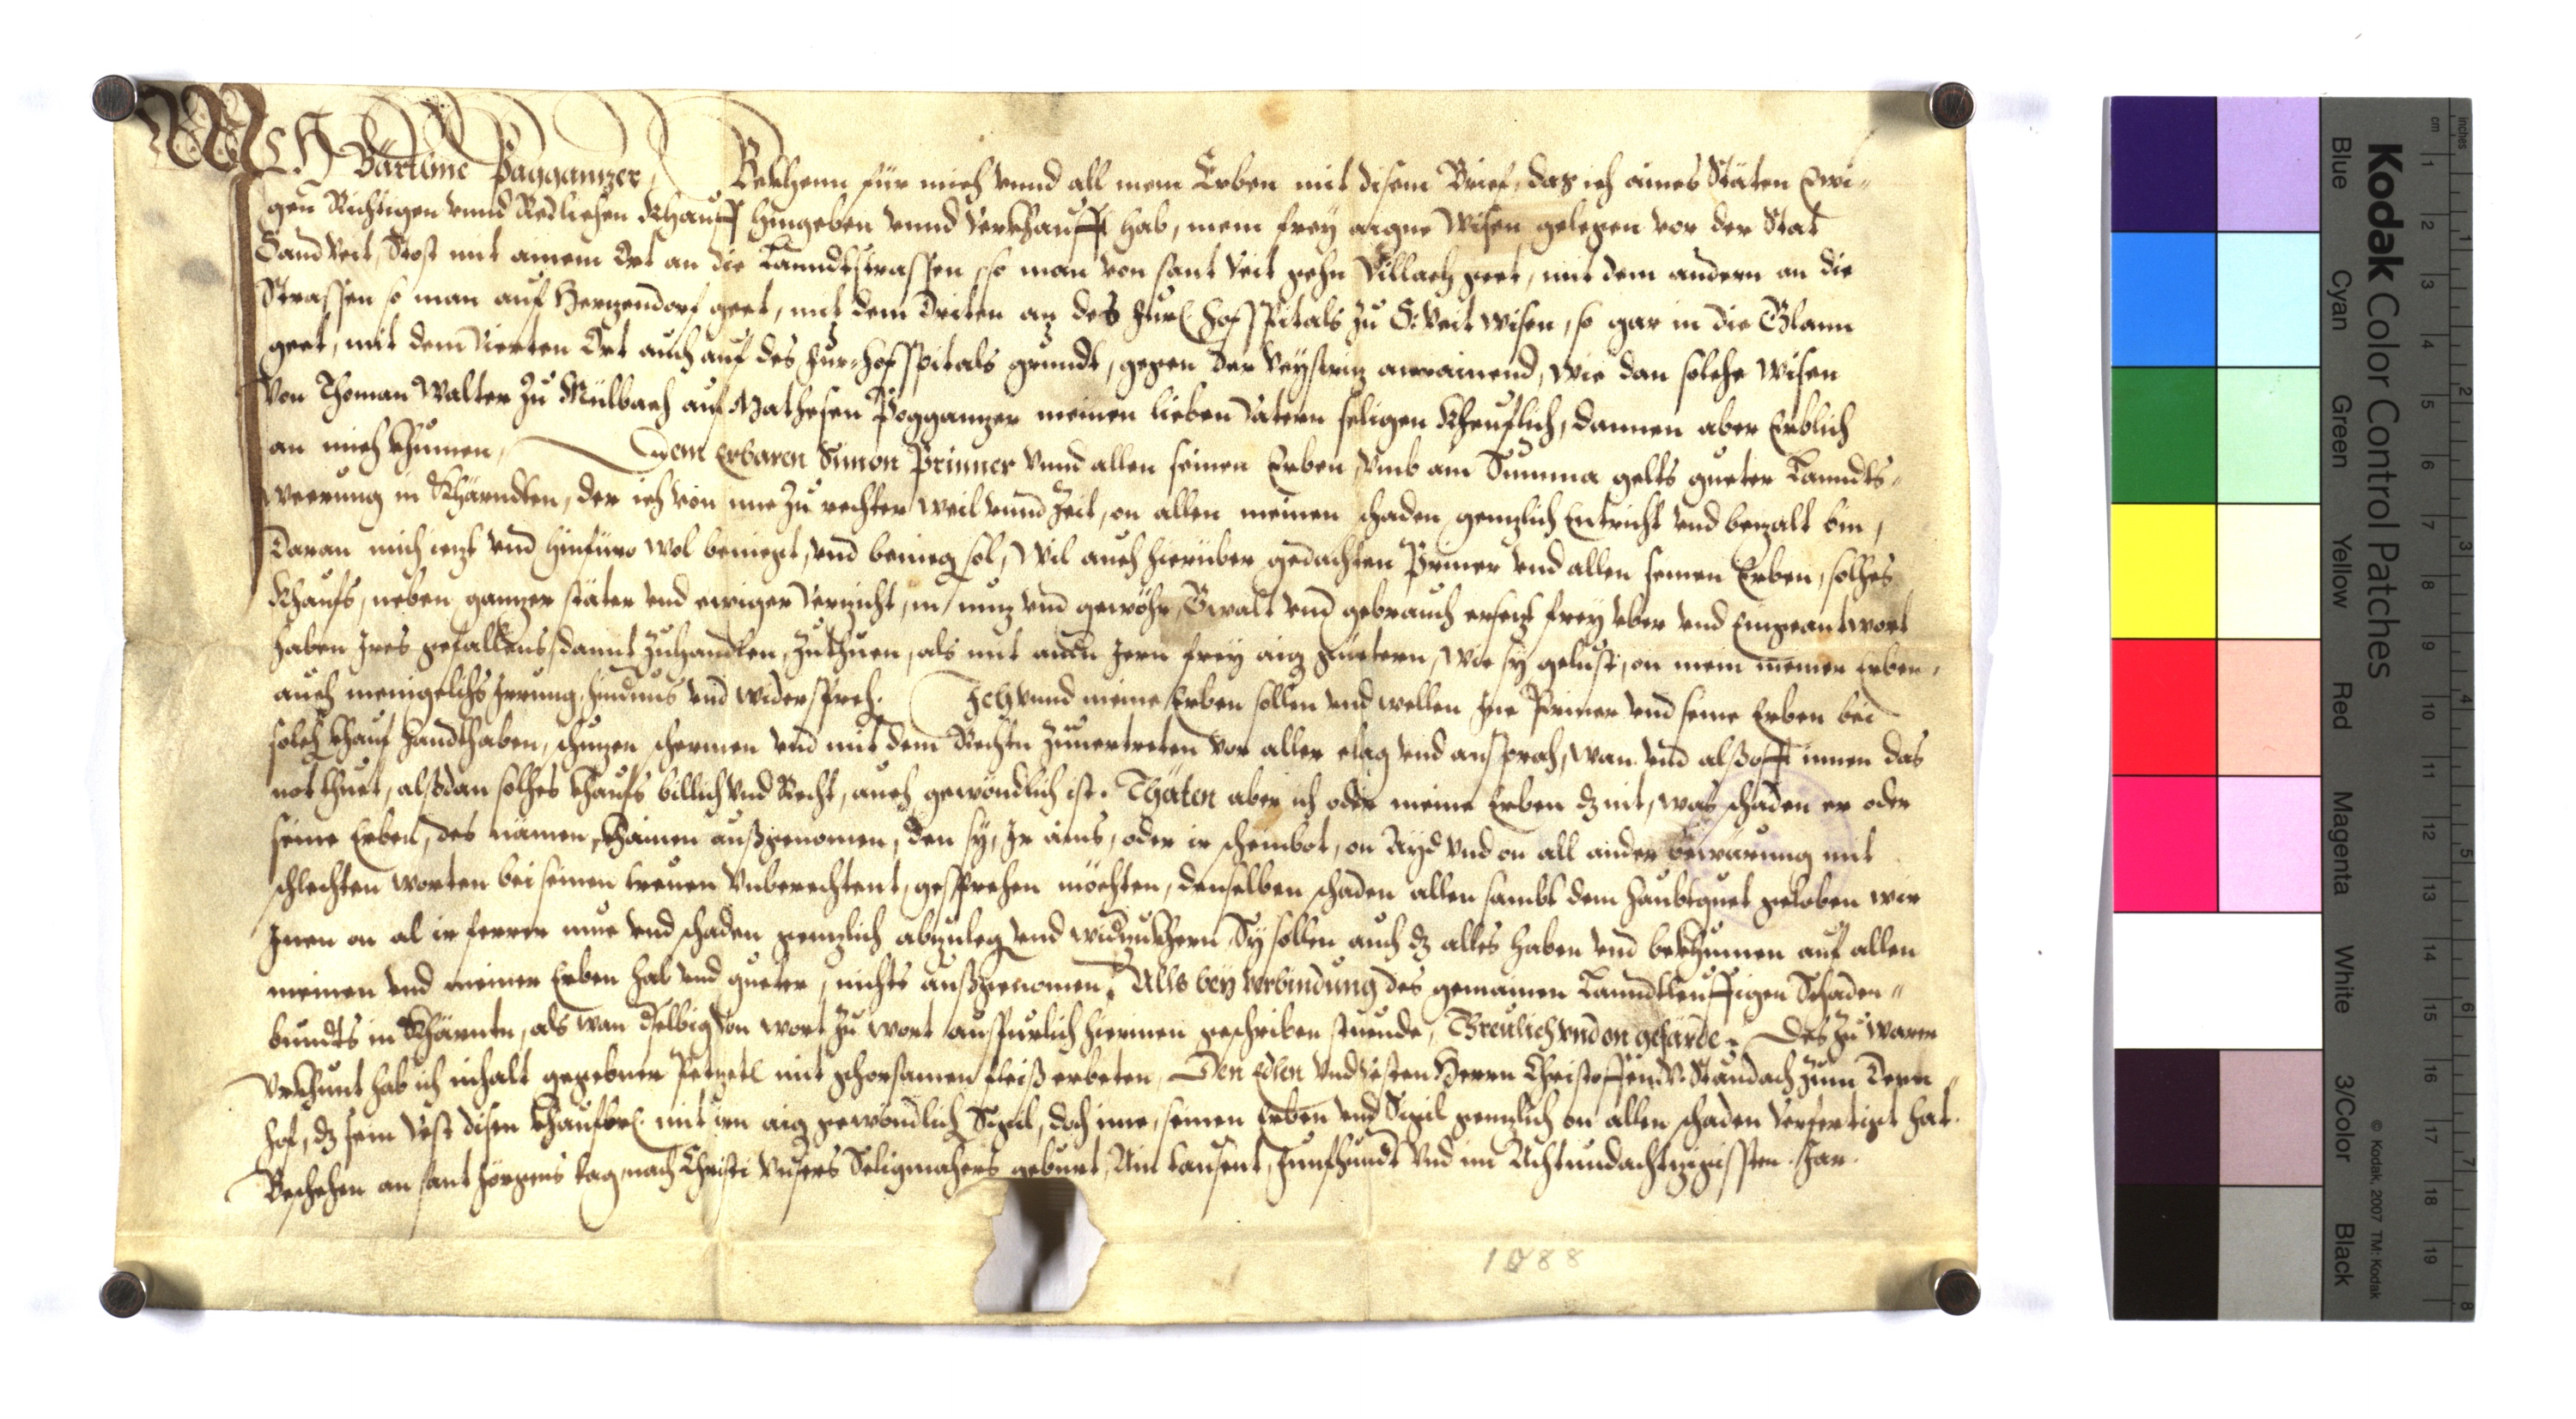 Ich Bärtlme Paggamzer, Bekhenn für mich vnnd all mein Erben mit disem Brief, das ich aines Stäten Ewi-
gen Richtigen vnnd Redlichen Khauff hingeben vnnd Verkhaufft hab, mein frey aigne Wisen gelegen vor der Stat
Sand Veit, Stost mit ainem Ort an die Lanndtstrassen, so man von sant Veit gehn Villach geet, mit dem andern an die
Strassen so man auf Herzendorf geet, mit dem Driten an des Fürl: Hofspitals zu S: Veit wisen, so gar in die Glann
geet, mit dem Vierten Ort auch auf des Für: Hofspitals grundt, gegen der Veystriz anrainend, wie dan solche Wisen
Von Thoman Walter zu Mülbach auf Mathesen Pogganzer meinen lieben Vatern seligen kheuflich, dannen aber Erblich
an mich khumen, Dem Erbaren Simon Prinner vnnd allen seinen Erben, vmb ain Summa gelts gueter Lanndts-
weerung in Khärndten, der ich von ime zu rechter weil vnnd Zeit, on allen meinen schaden genzlich Entricht vnd bezalt bin,
Daran mich iezt vnd hinfüro wol beniegt, vnd benieg sol, Wil auch hierüber gedachten Prinner vnd allen seinen Erben, solhes
Khaufs, neben ganzer stäter vnd ewiger Verzicht, in nuz vnd gewöhr, Gwalt vnd gebrauch ersezt frey vber vnd Eingeantwort
haben Jres gefallens damit zuhandlen, zuthuen, als mit andn Jern frey aig güetern, wie sy gelust, on mein meiner Erben,
auch menigelichs Jrrung, hindnus vnd widersprech. Ich vnnd meine Erben sollen vnd wellen Jne Prinner vnd seine Erben bei
solch khauf handthaben, schuzen schermen vnd mit dem Rechtn zuuertreten vor aller clag vnd ansprach, wan vnd alßofft innen das
not thuet, alßdan solhes khaufs billich vnd Recht, auch gewöndlich ist. Thäten aber ich oder meine Erben dz nit, was schaden er oder
seine Erben, des nämen, khainen außgenomen, den sy, Jr ains, oder ir scheinbot, on Ayd vnd on all ander bewärung mit
schlechten worten bei seinen treuen Vnberechtent, gesprechen möchten, denselben schaden allen sambt dem haubtguet geloben wir
Jnen on al ir ferrer mue vnd schaden genzlich abzuleg vnd widzukhern Sy sollen auch dz alles haben vnd bekhumen auf allen
meinen vnd meiner Erben hab vnd gueter, nichts außgenomen, Alls bey Verbindung des gemainen Lanndtleuffigen Schaden-
bundts in Khärntn, als wan dselbig von wort zu wort ausfürlich hierinen geschriben stuende, Threulich vnd on gefärde. Des zu waren
Vrkhunt hab ich inhalt gegebner Petzetl mit gehorsamen fleiß erbeten, Den Edlen vnd Vesten Herrn Christoffen v. Staudach zum Dern-
hof, dz sein Vest disen khaufbrf. mit irn aig gewöndlich Sigil, doch ime, seinen Erben vnd Sigil genzlich on allen schaden Verfertigt hat.
Beschehen an sant Jörgens tag, nach Christi Vnsers Seligmachers geburt, Ain tausent, Funfhundt vnd im Achtundachtzigissten Jar.
1588
Kodak Color Control Patches
Blue Cyan Green Yellow Red Magenta White 3/Color Black
© Kodak, 2007 TM: Kodak
inches 1 2 3 4 5 6 7 8
cm 1 2 3 4 5 6 7 8 9 10 11 12 13 14 15 16 17 18 19